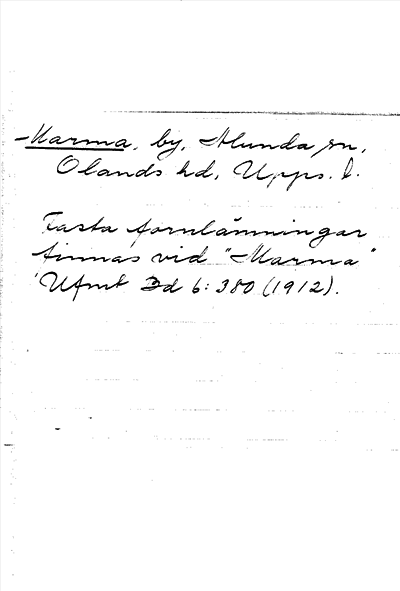 Marma, by, Alunda sn,
Olands hd, Upps. l.
Fasta fornlämningar
finnas vid "Marma"
Ufmt Bd 6:380 (1912).